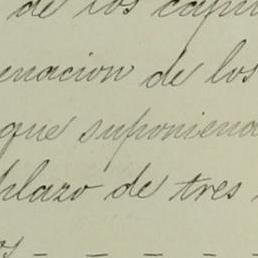 de los capi
enacion de los
que suponiend
plazo de tres
os